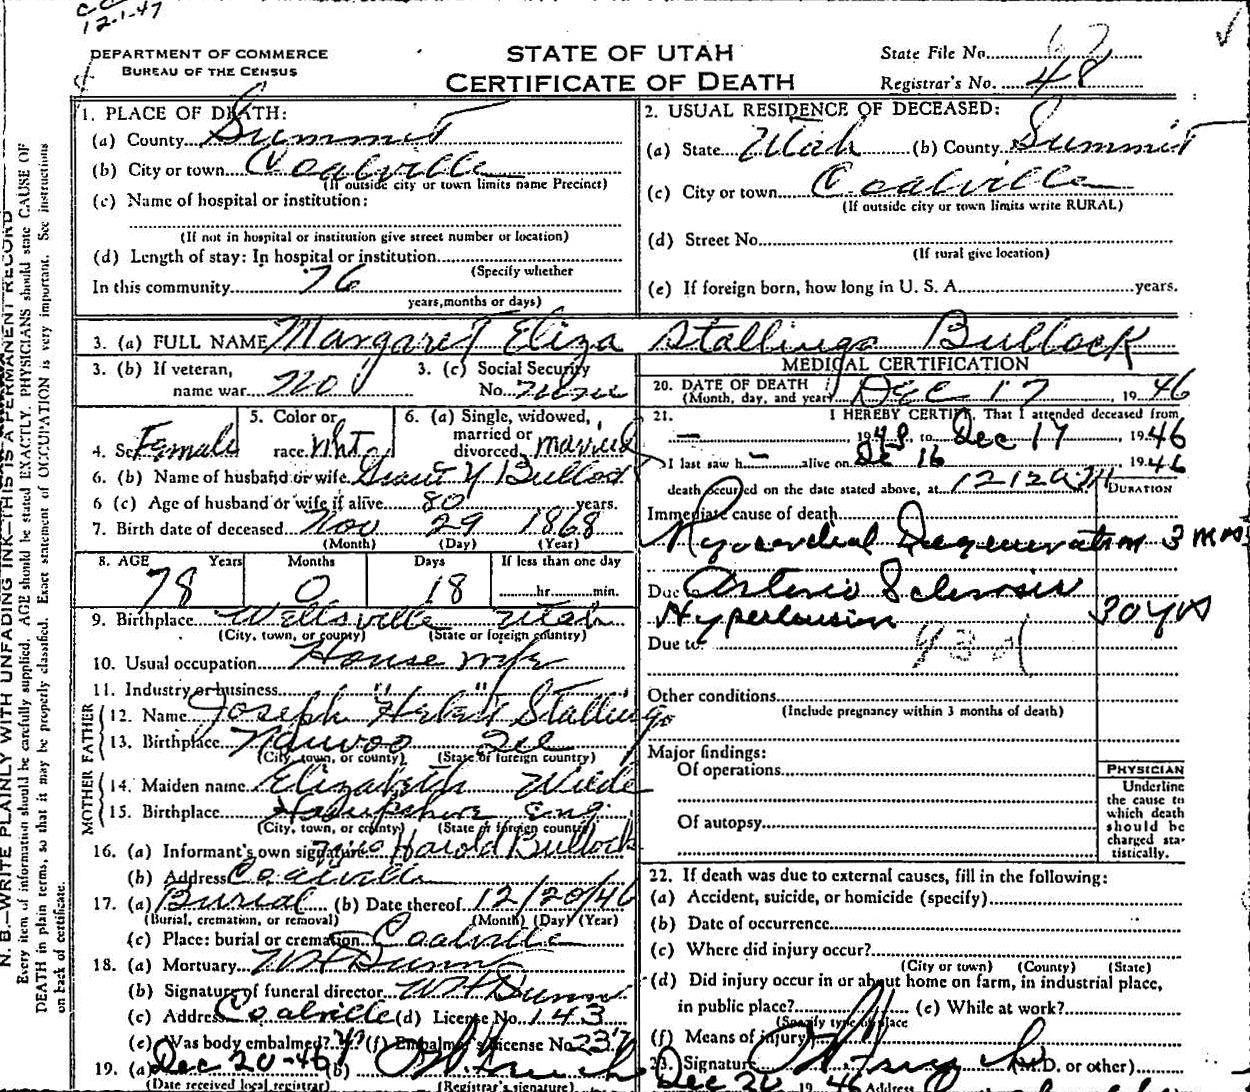 12-1-47
DEPARTMENT OF COMMERCE
BUREAU OF THE CENSUS
STATE OF UTAH
CERTIFICATE OF DEATH
State File No.
Registrar's No. 48
N. B.—WRITE PLAINLY WITH UNFADING INK—THIS IS A PERMANENT RECORD
Every item of information should be carefully supplied. AGE should be stated EXACTLY. PHYSICIANS should state CAUSE OF
DEATH in plain terms, so that it may be properly classified. Exact statement of OCCUPATION is very important. See instructions
on back of certificate.
1. PLACE OF DEATH:
(a) County Summit
(b) City or town Coalville
(If outside city or town limits name Precinct)
(c) Name of hospital or institution:
(If not in hospital or institution give street number or location)
(d) Length of stay: In hospital or institution
(Specify whether
In this community 76
years, months or days)
2. USUAL RESIDENCE OF DECEASED:
(a) State Utah (b) County Summit
(c) City or town Coalville
(If outside city or town limits write RURAL)
(d) Street No.
(If rural give location)
(e) If foreign born, how long in U. S. A. years.
3. (a) FULL NAME Margaret Eliza Stallings Bullock
3. (b) If veteran,
name war no
3. (c) Social Security
No. None
4. Sex Female
5. Color or
race White
6. (a) Single, widowed,
married or
divorced married
6. (b) Name of husband or wife Grant Y Bullock
6 (c) Age of husband or wife if alive 80 years.
7. Birth date of deceased Nov 29 1868
(Month) (Day) (Year)
8. AGE Years Months Days If less than one day
78 0 18 hr. min.
9. Birthplace Wellsville Utah
(City, town, or county) (State or foreign country)
10. Usual occupation House wife
11. Industry or business " "
FATHER
12. Name Joseph Herbert Stallings
13. Birthplace Nauvoo Ill
(City, town, or county) (State or foreign country)
MOTHER
14. Maiden name Elizabeth Wilde
15. Birthplace Hampshire Eng
(City, town, or county) (State or foreign country)
16. (a) Informant's own signature Mrs Harold Bullock
(b) Address Coalville
17. (a) Burial (b) Date thereof 12/20/46
(Burial, cremation, or removal) (Month) (Day) (Year)
(c) Place: burial or cremation Coalville
18. (a) Mortuary WH Dunn
(b) Signature of funeral director WH Dunn
(c) Address Coalville (d) License No. 143
(e) Was body embalmed? (f) Embalmer's License No. 237
19. (a) Dec 20-46 (b)
(Date received local registrar) (Registrar's signature)
MEDICAL CERTIFICATION
20. DATE OF DEATH
(Month, day, and year) Dec 17 1946
21. I HEREBY CERTIFY, That I attended deceased from
— 19 to Dec 17 1946
I last saw h— alive on Dec 16 1946
death occurred on the date stated above, at 1212 a m.
DURATION
Immediate cause of death
Myocardial Degeneration 3 mos
Due to Arterio Sclerosis
Hypertension 30 yrs
Due to:
Other conditions
(Include pregnancy within 3 months of death)
Major findings:
Of operations
Of autopsy
PHYSICIAN
Underline
the cause to
which death
should be
charged sta-
tistically.
22. If death was due to external causes, fill in the following:
(a) Accident, suicide, or homicide (specify)
(b) Date of occurrence
(c) Where did injury occur?
(City or town) (County) (State)
(d) Did injury occur in or about home on farm, in industrial place,
in public place? (e) While at work?
(Specify type of place
(f) Means of injury
23. Signature (M.D. or other)
Dec 20 1946 Address